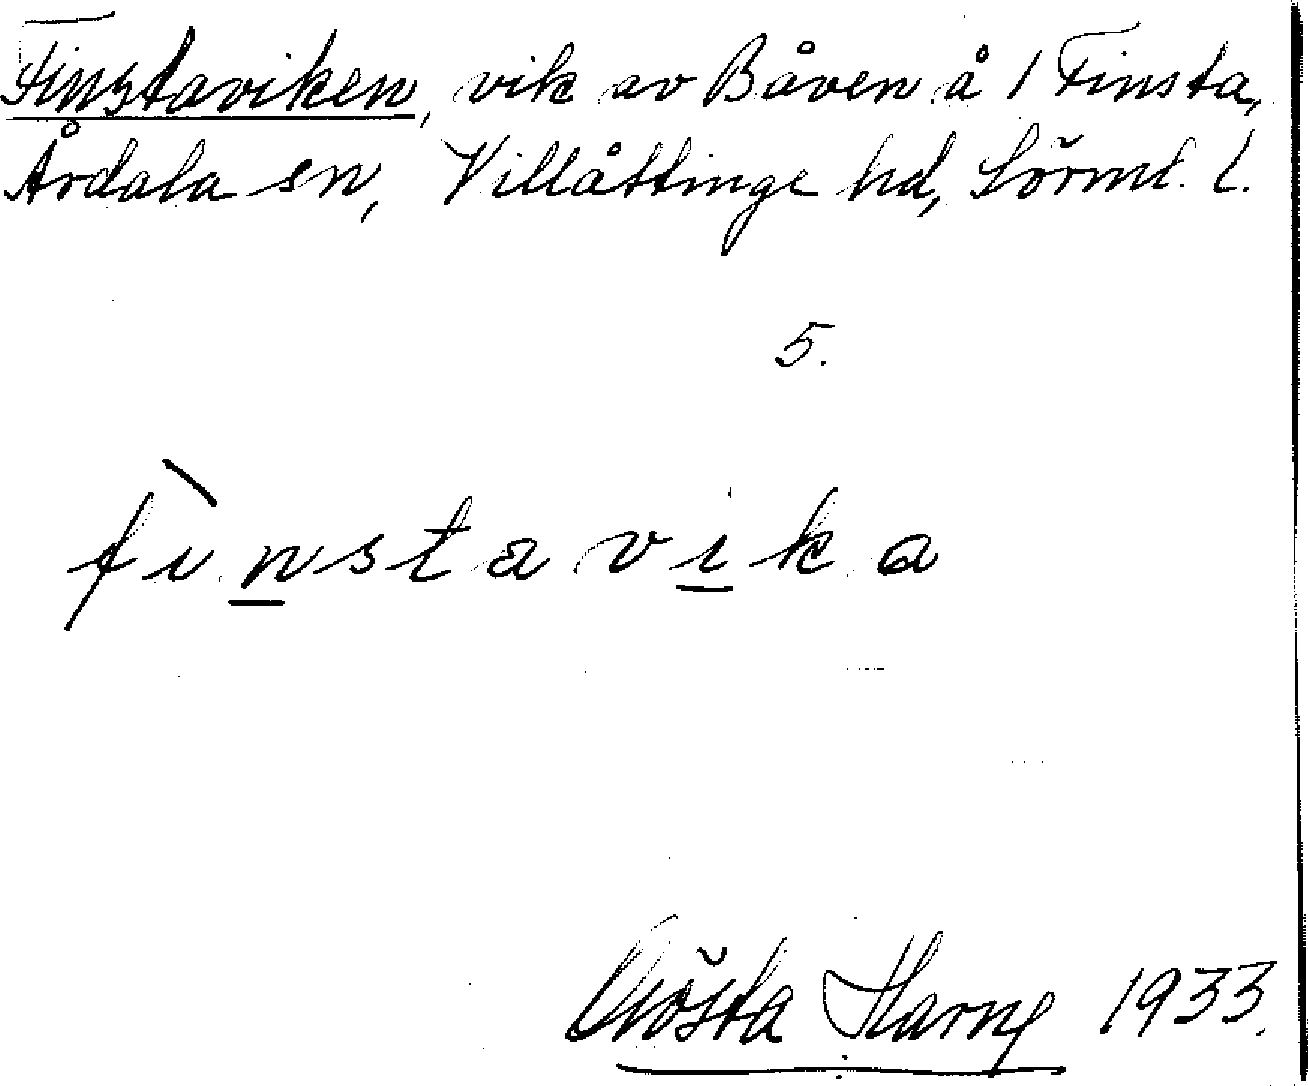 Finstaviken, vik av Båven å 1 Finsta,
Årdala sn, Villåttinge hd, Sörml. l.
5.
fìnstavika
Gösta Harng 1933.